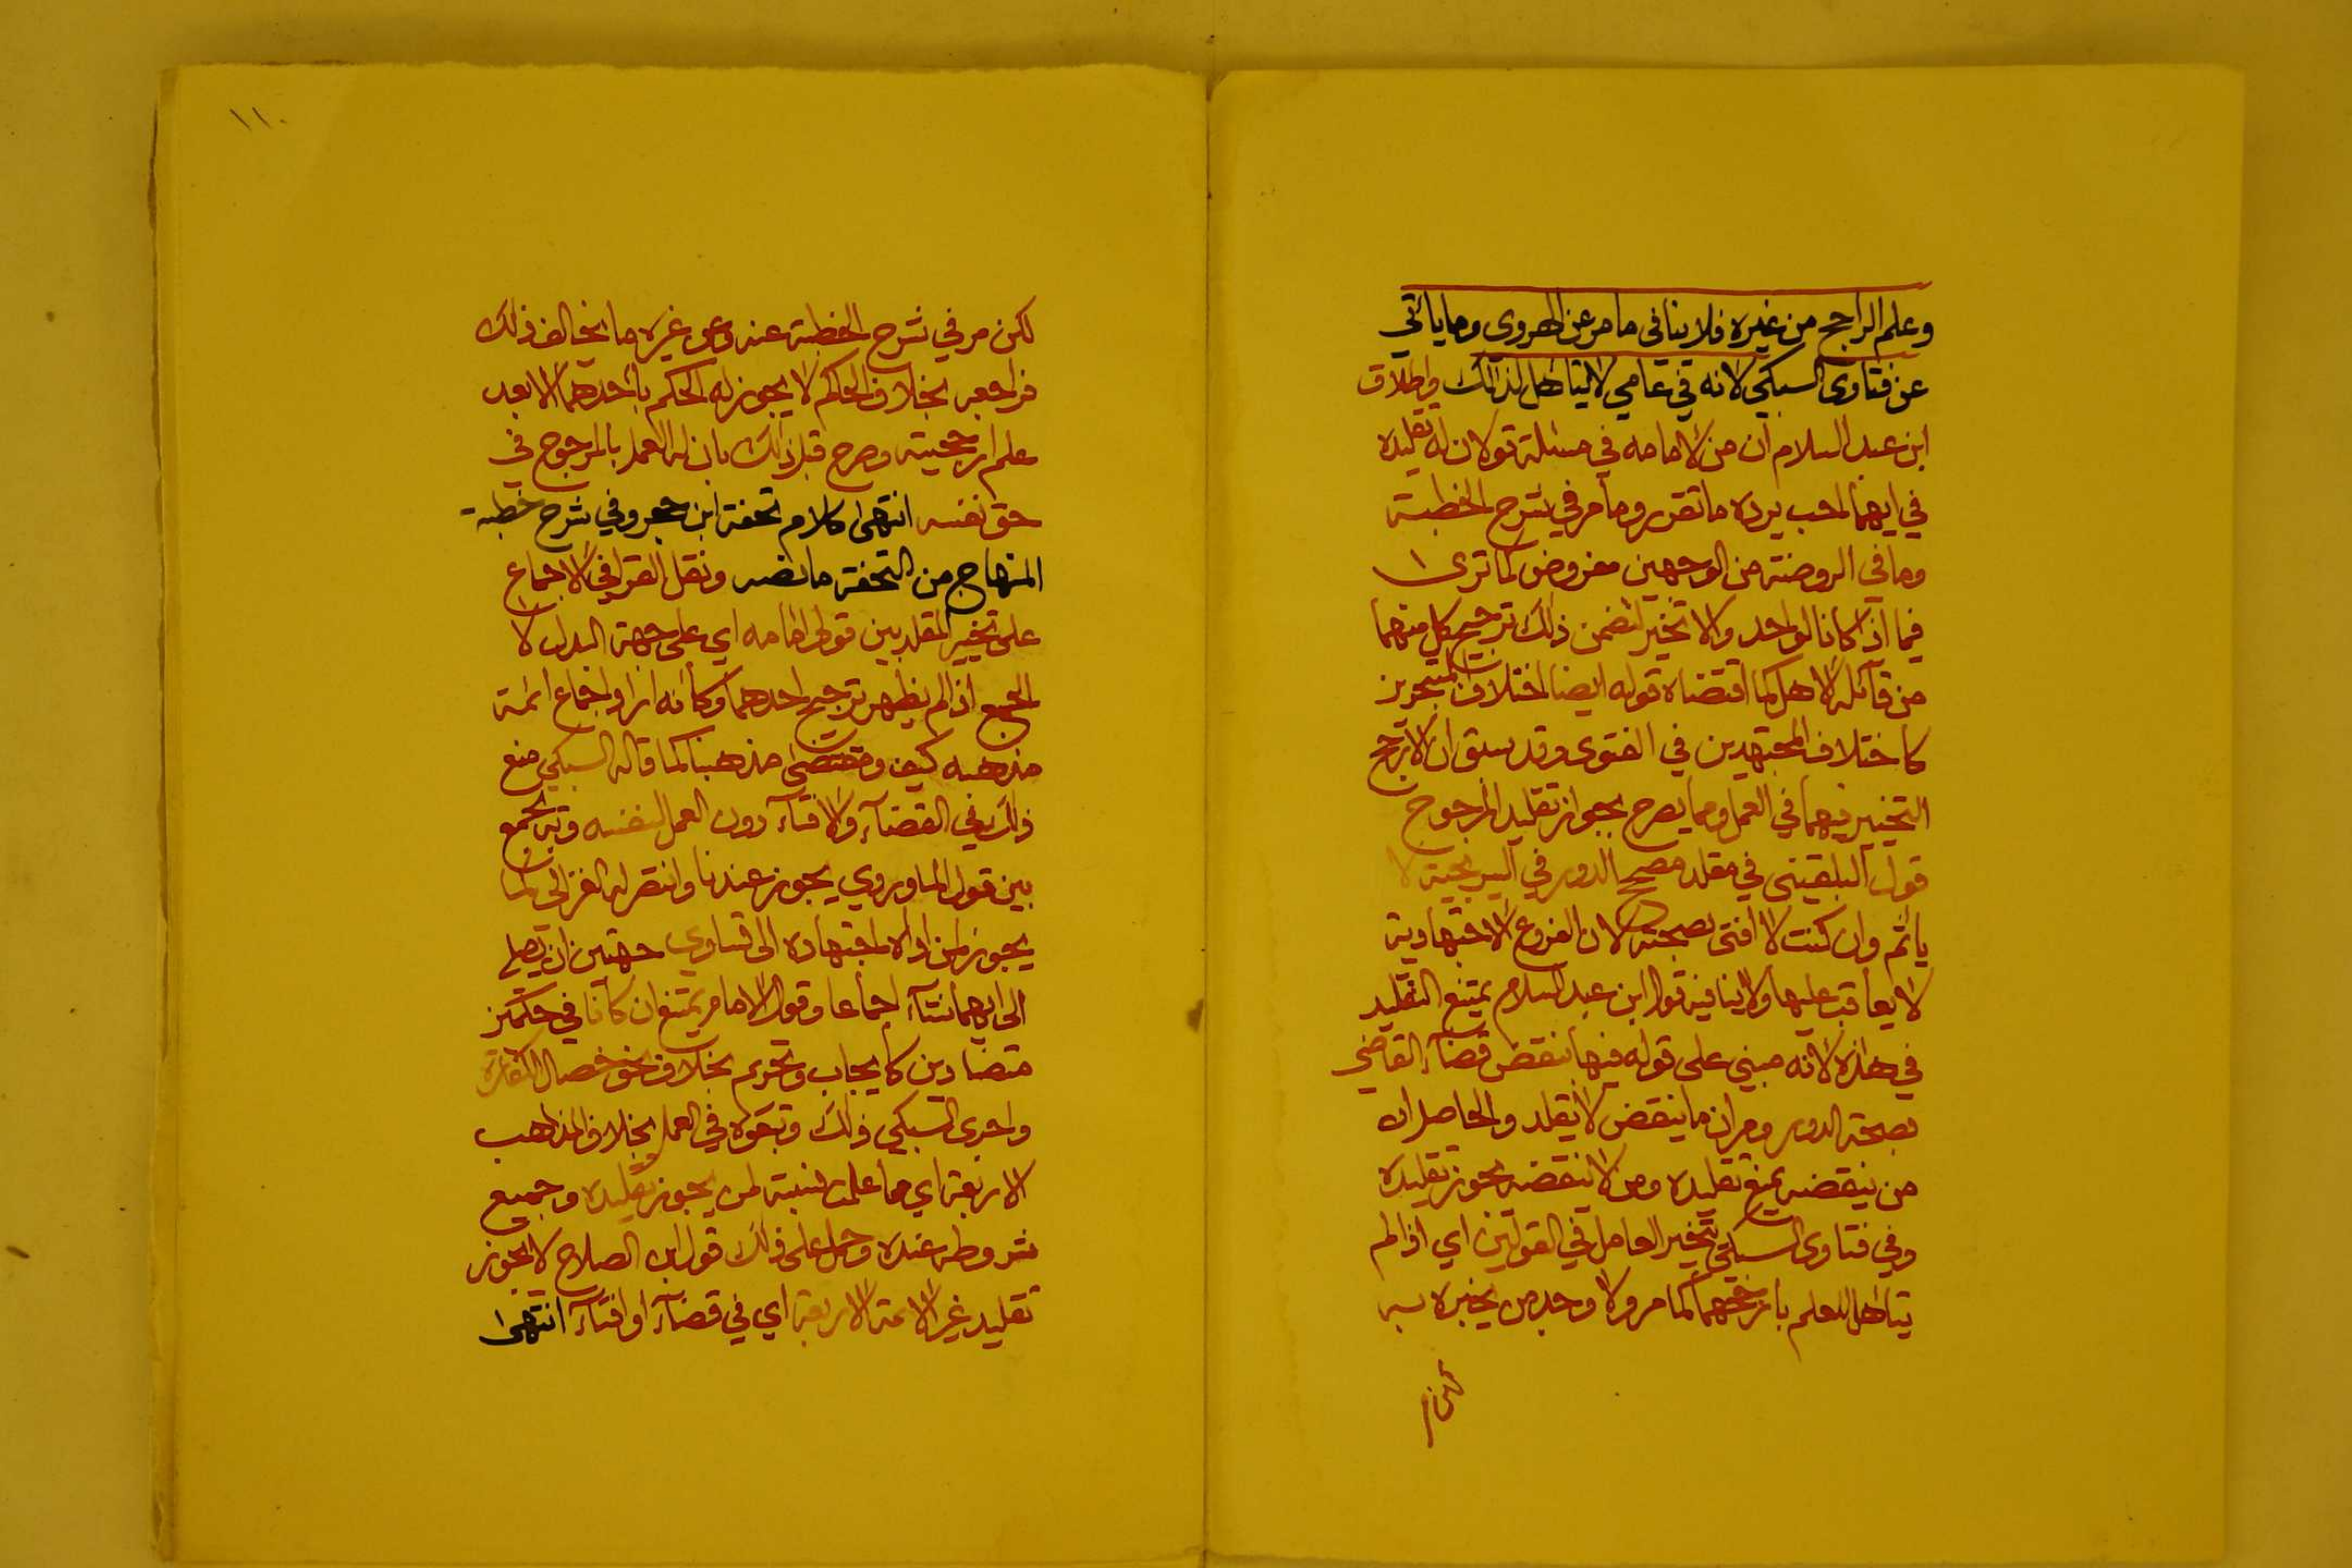 وعلم الراجح من غيره فلا ينافى مامر عن الهروى وما ياتي
عن فتاوى السبكي لانه في عامي لا يتاهل لذالك واطلاق
ابن عبد السلام ان من لامامه في مسئلة قولان له تقليده
في ايهما احب يرده ما تقرر وما مر في شرح الخطبة
وما في الروضة من الوجهين مفروض كما ترى
فيما اذا كانا لواحد والا تخير لتضمن ذلك ترجيح كل منهما
من قائله الاهل كما اقتضاه قوله ايضا اختلاف المتبحرين
كاختلاف المجتهدين في الفتوى وقد سبق ان الارجح
التخيير فيهما في العمل ومما يصرح بجواز تقليد المرجوح
قول البلقيني في مقلد مصحح الدور في السريجية لا
ياثم وان كنت لا افتى بصحته لان الفروع الاجتهادية
لا يعاقب عليها ولا ينافيه قول ابن عبد السلام يمتنع التقليد
في هذه لانه مبني على قوله فيها ينقض قضآء القاضي
بصحة الدور ومر ان ما ينقض لا يقلد والحاصل ان
من ينقضه يمنع تقليده ومن لا ينقضه يجوز تقليده
وفي فتاوى السبكي يتخير العامل في القولين اي اذا لم
يتاهل للعلم بارجحهما كما مر ولا وجد من يخبره به
لكن مر في شرح الخطبة عنه وعن غيره ما يخالف ذلك
فراجعه بخلاف الحاكم لا يجوز له الحكم باحدهما الا بعد
علم ارجحيته وصرح قبل ذلك بان له العمل بالمرجوح في
حق نفسه انتهى كلام تحفة ابن حجر وفي شرح خطبة
المنهاج من التحفة ما نصه ونقل القرافي الاجماع
على تخيير المقلد بين قولى امامه اي على جهة البدل لا
الجمع اذا لم يظهر ترجيح احدهما وكأنه اراد اجماع ائمة
مذهبه كيف ومقتضى مذهبنا كما قاله السبكي منع
ذلك في القضآء والافتآء دون العمل لنفسه وبه يجمع
بين قول الماوردي يجوز عندنا وانتصر له الغزالي كما
يجوز لمن اداه اجتهاده الى تساوي جهتين ان يصلي
الى ايهما شآء اجماعا وقول الامام يمتنع ان كانا في حكمين
متضادين كايجاب وتحريم بخلاف نحو خصال الكفارة
واجرى السبكي ذلك وتبعوه في العمل بخلاف المذاهب
الاربعة اي مما علمت نسبته لمن يجوز تقليده وجميع
شروطه عنده وحمل على ذلك قول ابن الصلاح لا يجوز
تقليد غير الائمة الاربعة اي في قضآء او افتآء انتهى